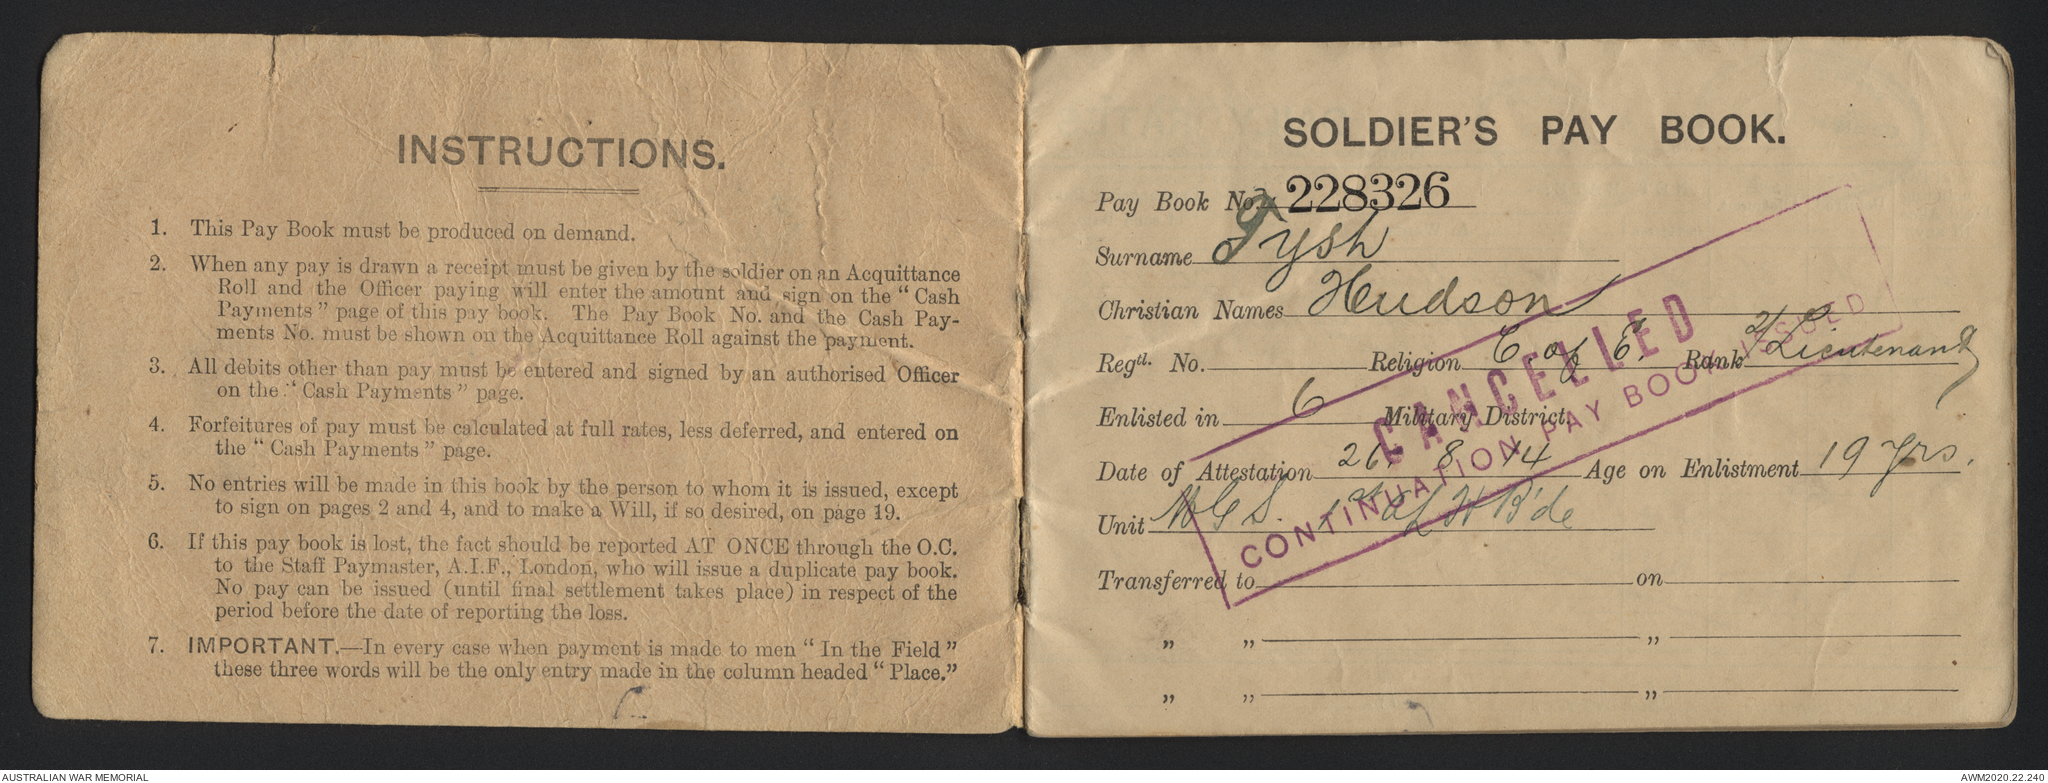 INSTRUCTIONS.
1. This Pay Book must be produced on demand.
2. When any pay is drawn a receipt must be given by the soldier on an Acquittance
Roll and the Officer paying will enter the amount and sign on the “Cash
Payments” page of this pay book. The Pay Book No. and the Cash Pay-
ments No. must be shown on the Acquittance Roll against the payment.
3. All debits other than pay must be entered and signed by an authorised Officer
on the “Cash Payments” page.
4. Forfeitures of pay must be calculated at full rates, less deferred, and entered on
the “Cash Payments” page.
5. No entries will be made in this book by the person to whom it is issued, except
to sign on pages 2 and 4, and to make a Will, if so desired, on page 19.
6. If this pay book is lost, the fact should be reported AT ONCE through the O.C.
to the Staff Paymaster, A.I.F., London, who will issue a duplicate pay book.
No pay can be issued (until final settlement takes place) in respect of the
period before the date of reporting the loss.
7. IMPORTANT.—In every case when payment is made to men “In the Field”
these three words will be the only entry made in the column headed “Place.”
SOLDIER'S PAY BOOK.
Pay Book No. 228326
Surname Fysh
Christian Names Hudson
Regtl. No. Religion C. of E. Rank 2/Lieutenant
Enlisted in 6 Military District.
Date of Attestation 26 8 14 Age on Enlistment 19 yrs.
Unit M G S. 1st L H B'de
Transferred to on
„ „ „
„ „ „
CANCELLED
CONTINUATION PAY BOOK ISSUED
AUSTRALIAN WAR MEMORIAL
AWM2020.22.240